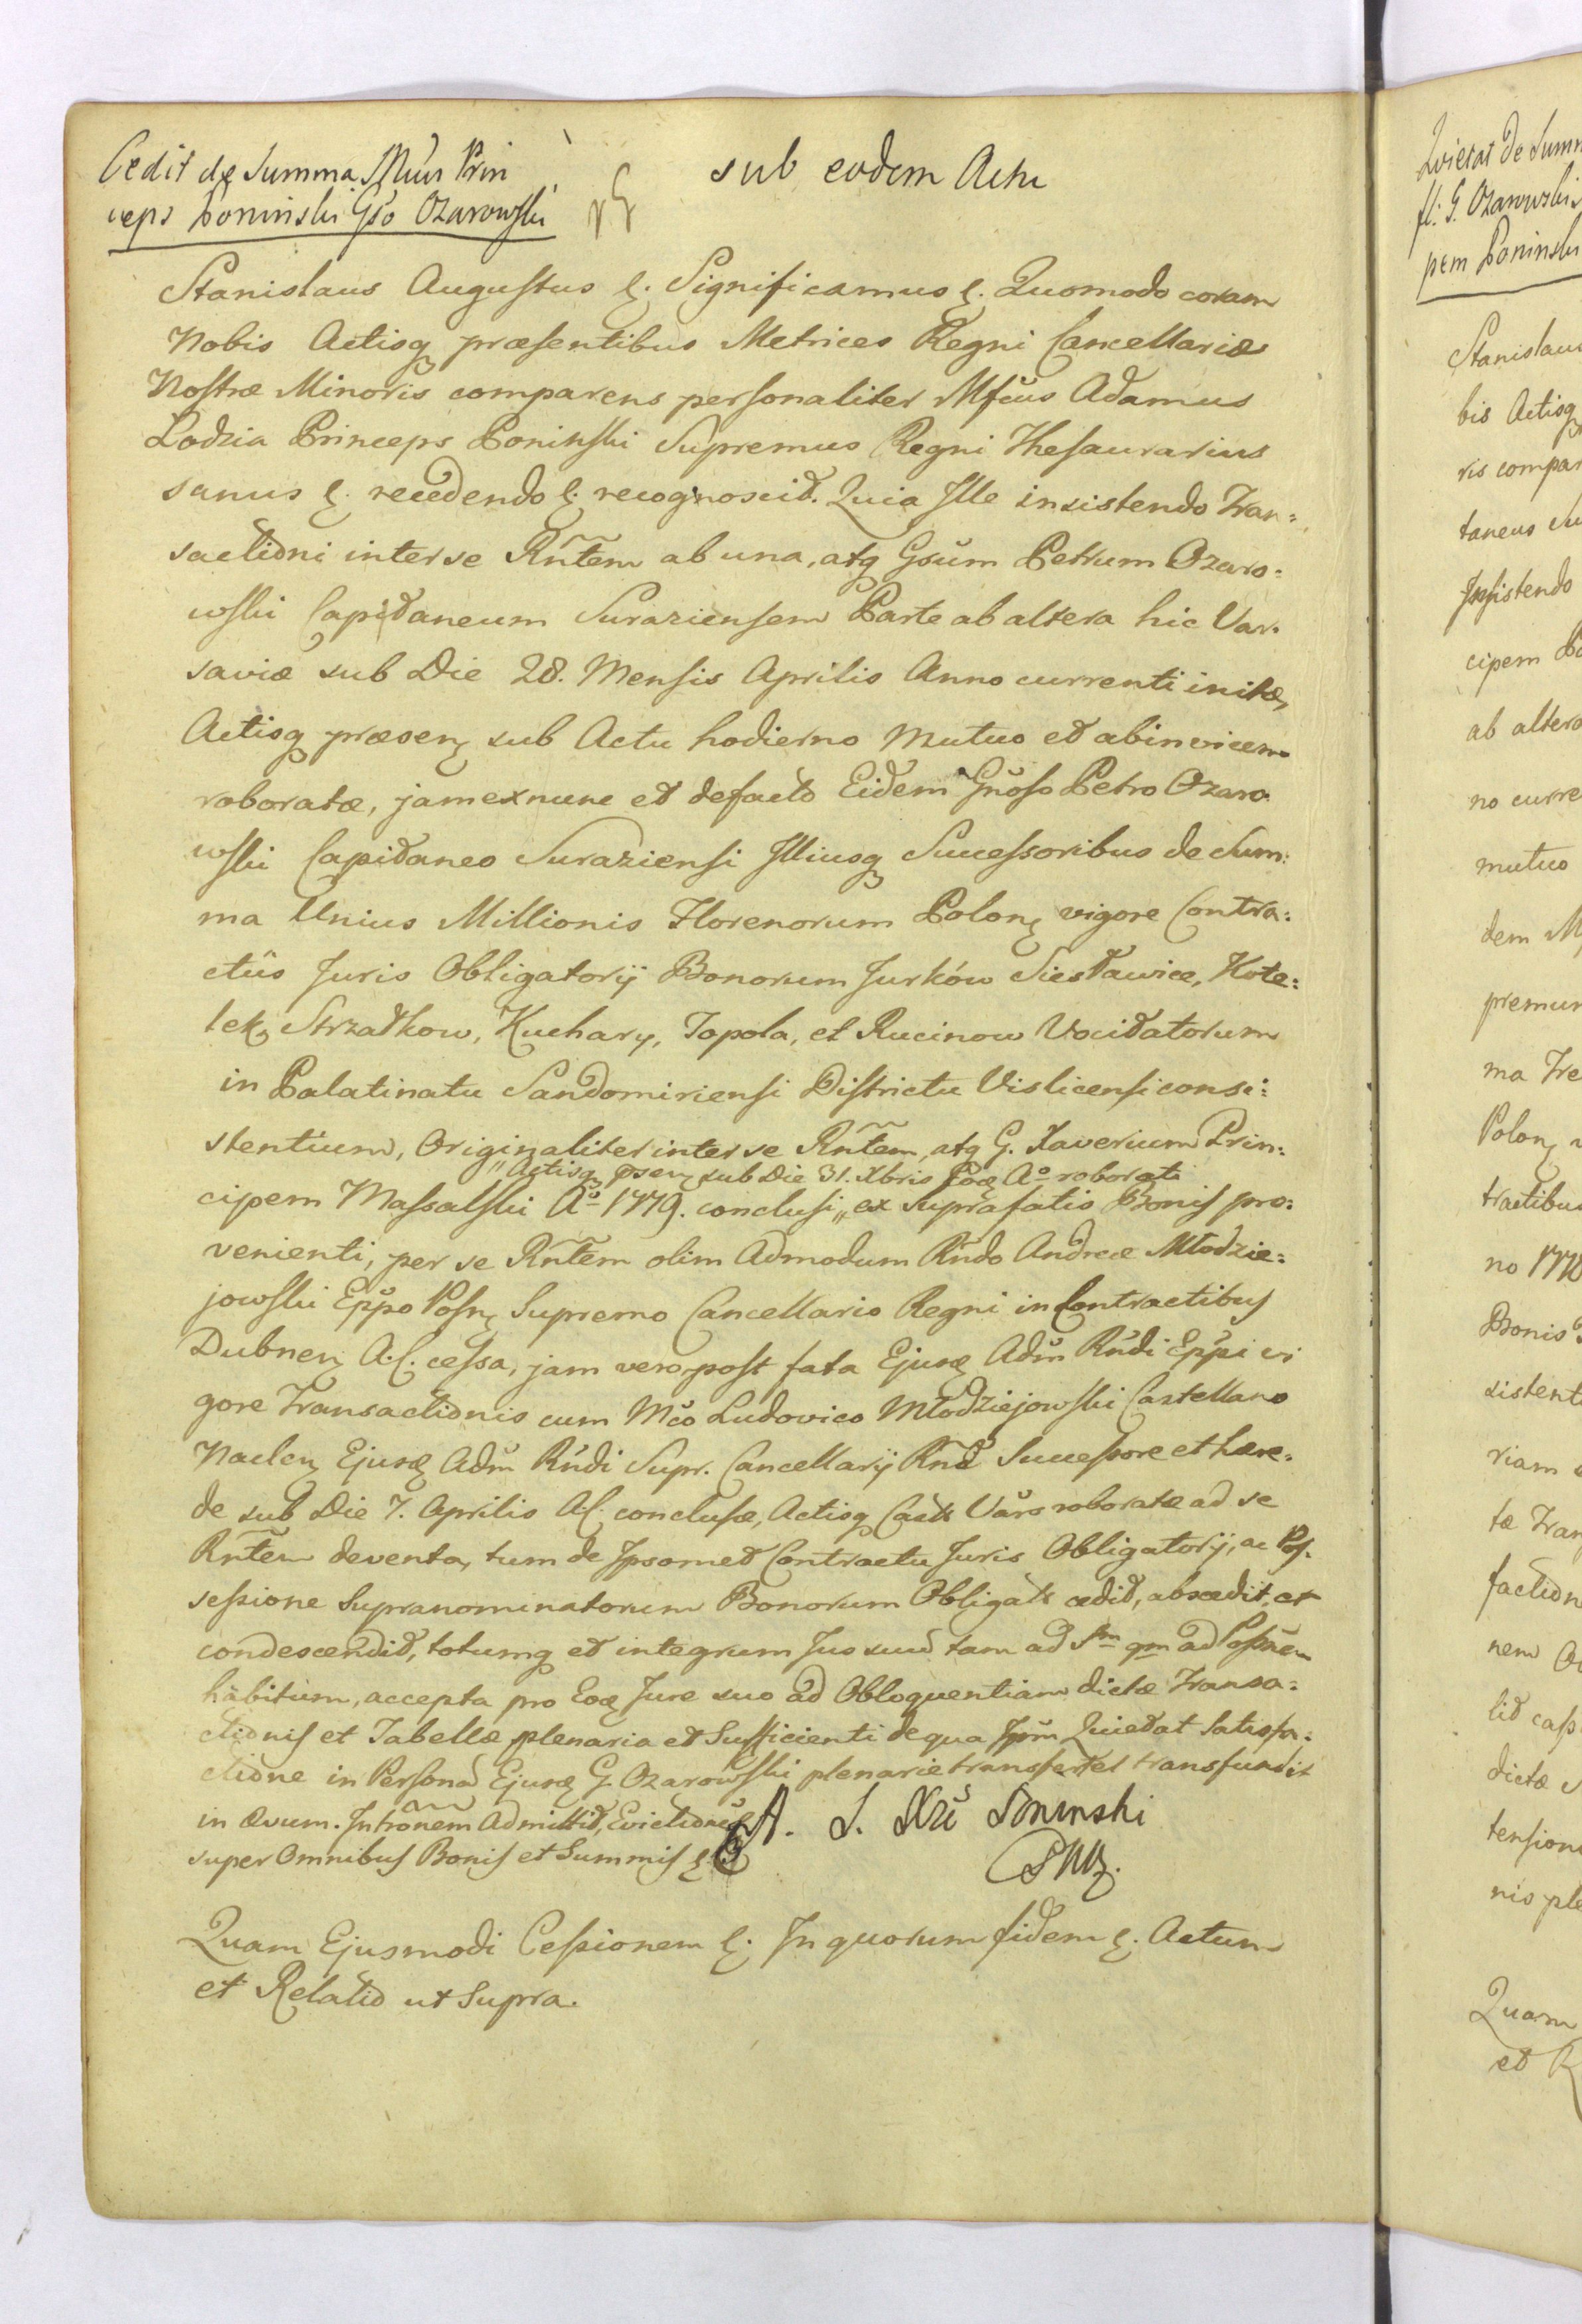 Cedit de Summa Mcus Prin
ceps Poninski Gso Ozarowski
sub eodem Actu
Stanislaus Augustus &. Significamus &. Quomodo coram
Nobis Actisq præsentibus Metrices Regni Cancellariæ
Nostræ Minoris comparens personaliter Mfcus Adamus
Lodzia Princeps Poninski Supremus Regni Thesaurarius
sanus &. recedendo &. recognoscit. Quia Ille insistendo Tran:
sactioni inter se Rntem ab una, atq Gsum Petrum Ozaro:
wski Capitaneum Suraziensem Parte ab altera hic Var:
saviæ sub Die 28. Mensis Aprilis Anno currenti initæ,
Actisq præsen sub Actu hodierno mutuo et abinvicem
roboratæ, jam ex nunc et de facto Eidem Gnoso Petro Ozaro
wski Capitaneo Suraziensi Illiusq Successoribus de Sum:
ma Unius Millionis Florenorum Polon vigore Contra:
ctûs Juris Obligatorij Bonorum Jurków Siesławice, Kote:
lek, Strzałkow, Kuchary, Topola, et Rucinow Vocitatorum
in Palatinatu Sandomiriensi Districtu Vislicensi consi:
stentium, Originaliter inter se Rntem, atq G. Xaverium Prin:
" Actisq psen sub Die 31. Xbris Eoq Aº roborati
cipem Massalski Aº 1779. conclusi " ex suprafatis Bonis pro:
venienti, per se Rntem olim Admodum Rndo Andreæ Młodzie:
jowski Eppo Posn Supremo Cancellario Regni in Contractibus
Dubnen A.C. cessa, jam vero post fata Ejusq Adm Rndi Eppi vi
gore Transactionis cum Mco Ludovico Młodziejowski Castellano
Naclen Ejusq Adm Rndi Supr. Cancellarij Rnd Successore et hære:
de sub Die 7. Aprilis A.C. conclusæ, Actisq Cast Vars roboratæ ad se
Rntem deventa, tum de Ipsomet Contractu Juris Obligatorij, ac Pos:
sessione supranominatorum Bonorum Obligat cedit, abscedit, et
condescendit, totumq et integrum Jus suu tam ad Sm qm ad Possnem
habitum, accepta pro Eoq Jure suo ad Obloquentiam dictæ Transa:
ctionis et Tabellæ plenaria et Sufficienti de qua Ipm Quietat satisfa:
ctione in Personam Ejusq G. Ozarowski plenarie transfert et transfundit
in ævum. Intronem Admittit, Evictionem
super Omnibus Bonis et Summis &.
A. Poninski
Quam Ejusmodi Cessionem &. In quorum fidem &. Actum
et Relatio ut Supra.
Quietat de Summ
fl: G. Ozarowski
pem Poninski
Stanislaus
bis Actisq
ris compar
taneus Su
Insistendo
cipem Po
ab altera
no curre
mutuo
dem M
premum
ma Tre
Polon
tractibus
no 1778
Bonis
sistent
riam
tæ Tran
faction
nem
lit cass
dictæ
tension
nis ple
Quam
et R